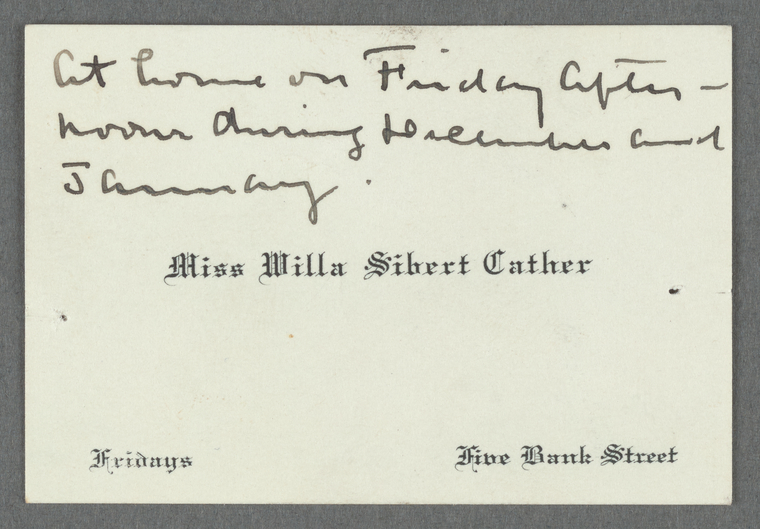 At home on Friday after-
noons during December and
January.
Miss Willa Sibert Cather
Fridays
Five Bank Street